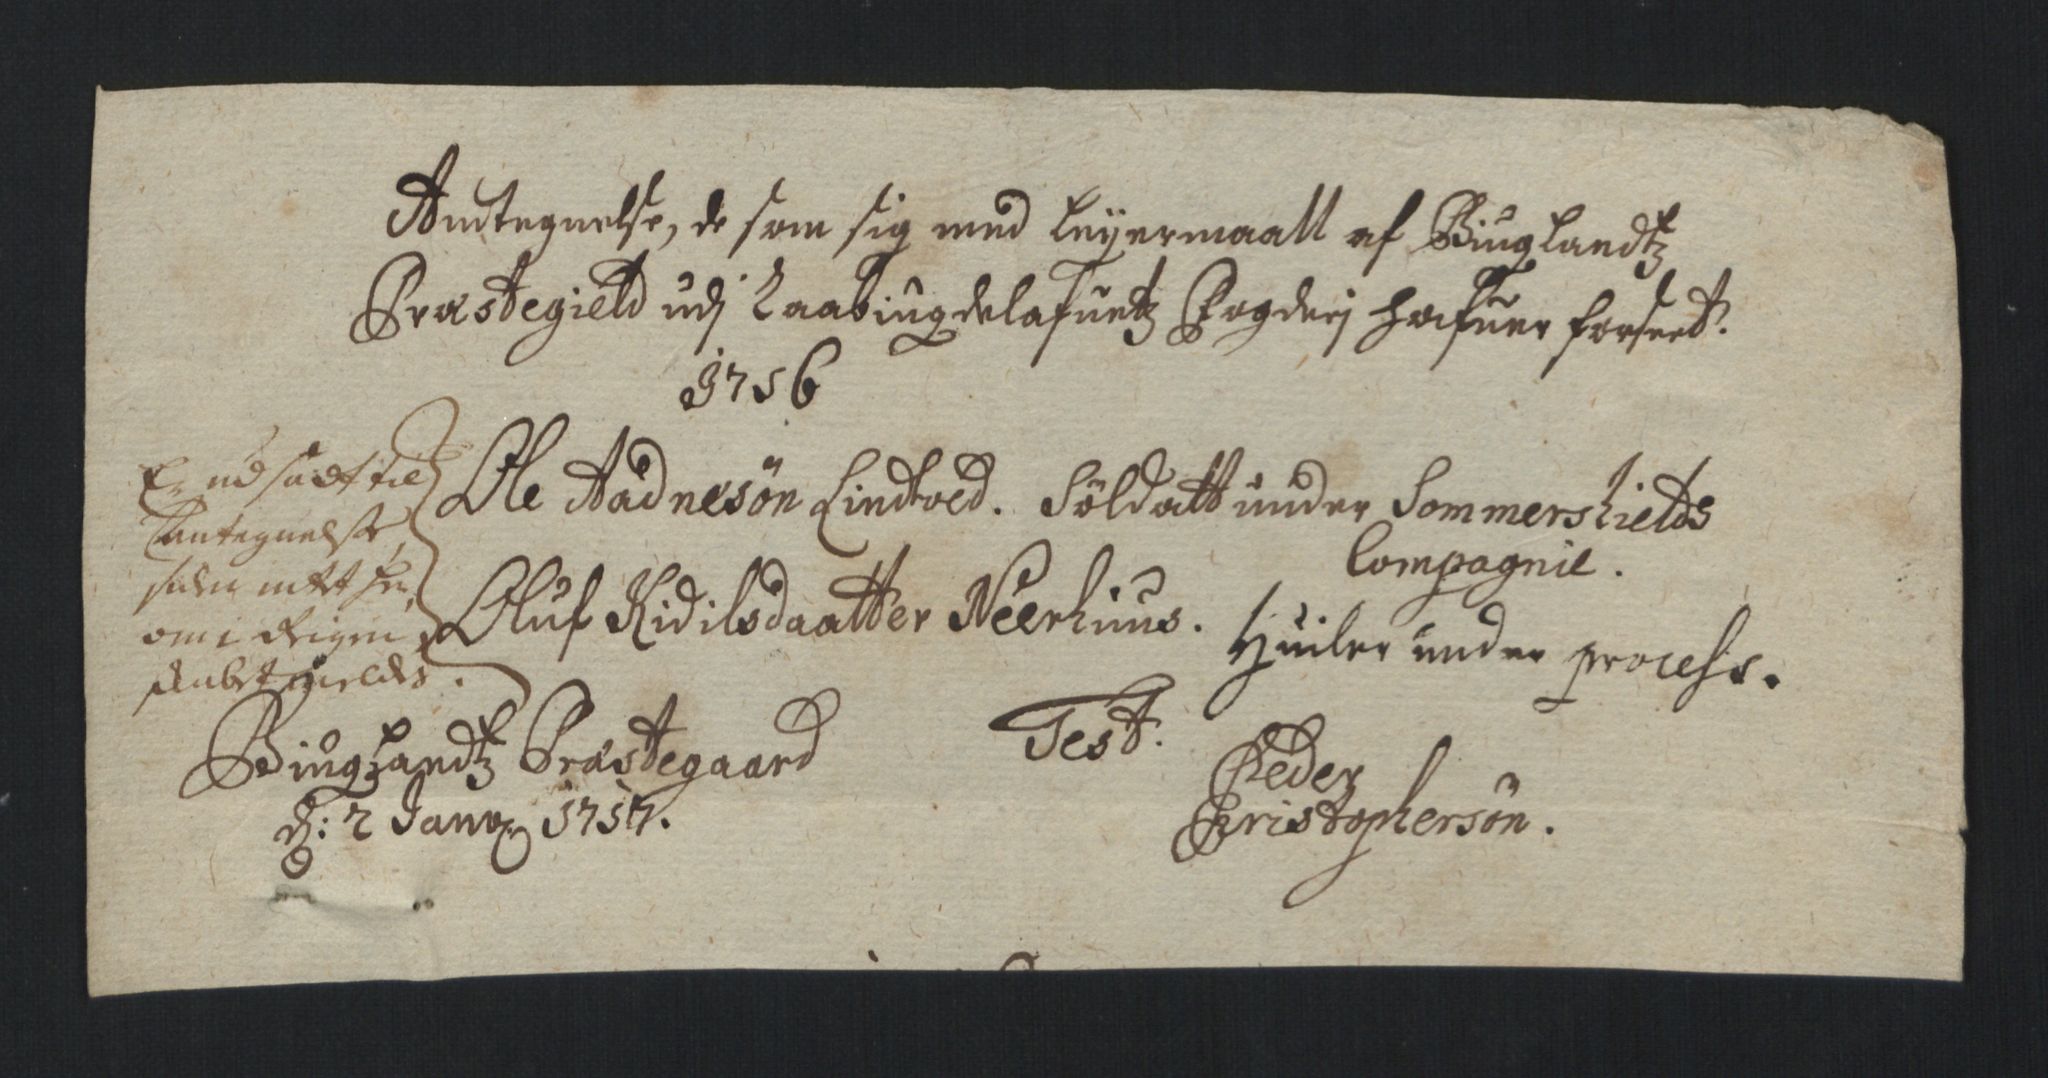 Andtegnelse, de som sig med Leyermaall af Biuglandtz
Præstegield udj Raabiugdelafuetz Fogderj hafuer forseet.
1716
Ole Aadnesøn Lindtved. Soldatt under Sommerskields
Compagnie.
Oluf Kidilsdaatter Neerhuus. Huiler under process.
Antegnelse,
Biuglandtz Præstegaard
d: 2 Janv. 1717.
Test.
Peder
Christophersøn.